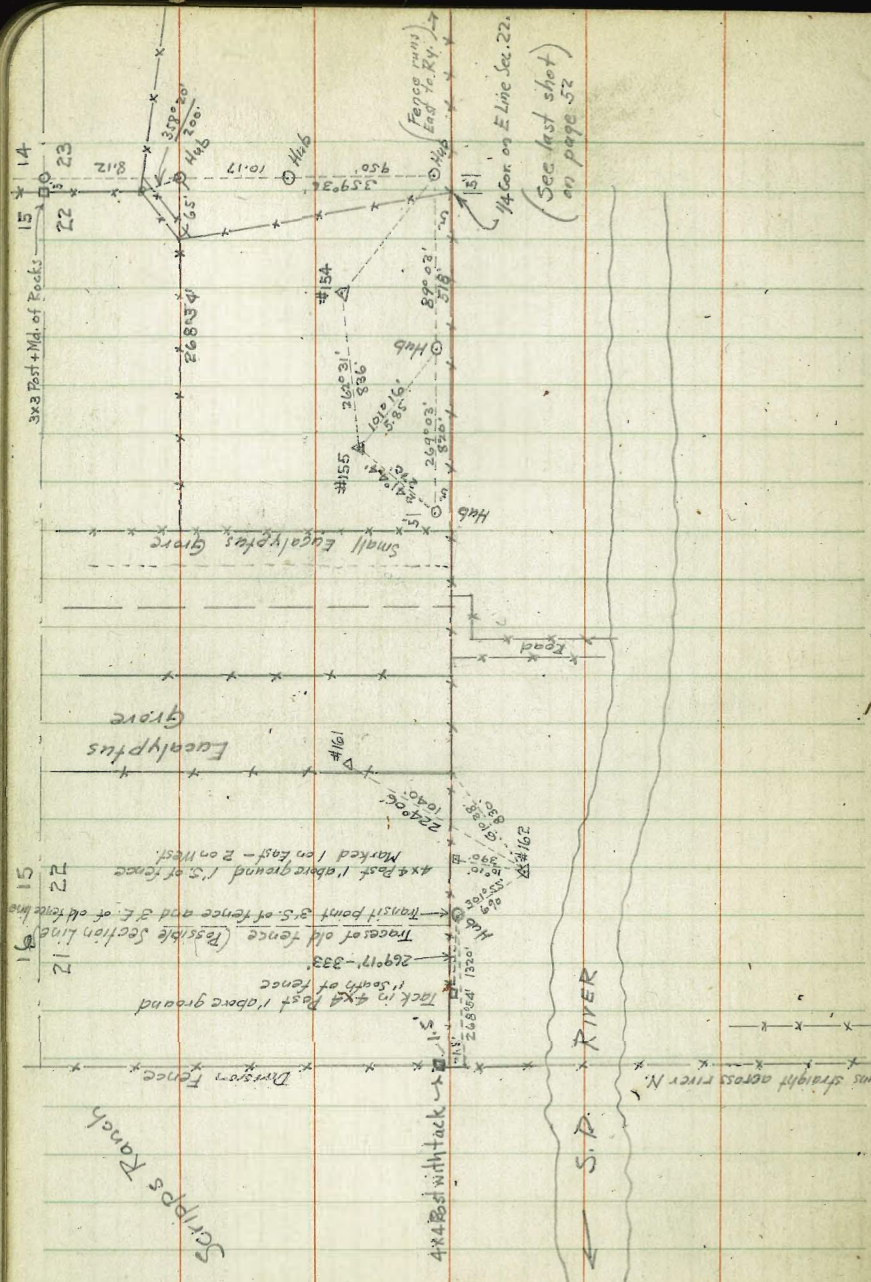 3x3 Post + Md. of Rocks
15 14
22 23
8.12
358°20'
200'
Hub
65'
10.17
Hub
359°36'
950'
Hub
(Fence runs
East to Ry.)
5'
1/4 Cor. on E Line Sec. 22.
(See last shot
on page 52)
268°54'
#154
262°31'
836'
#155
101°16'
5.85'
Hub
89°03'
518'
269°03'
820'
5'
5'
5'
Hub
Small Eucalyptus Grove
Road
Eucalyptus
Grove
#161
224°06'
1040'
#162
830'
390'
301°55'
690
Hub
16 15
21 22
4x4 Post 1' above ground 1' S. of fence
Marked 1 on East - 2 on West.
Transit point 3' S. of fence and 3' E. of old fence line
Traces of old fence (Possible Section Line)
269°17' - 333'
Tack in 4x4 Post 1' above ground
1' South of fence
268°54' 1320'
1.5
Division Fence
4x4 Post with tack
Scripps Ranch
S.D. RIVER
straight across river N.